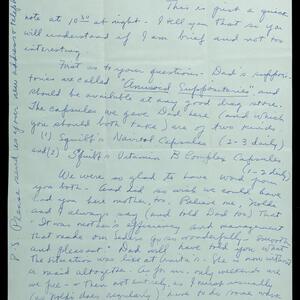 This is just a quick
note at 10:30 at night - I tell you that so you
will understand if I am brief and not too
interesting.
First as to your questions. Dad's supposi-
tories are called "Anusol Suppositories" and
should be available at any good drug store.
The capsules we gave Dad here (and which
you should both take) are of two kinds
(1) Squibb's Navitol Capsules (2-3 daily)
and (2) Squibb's Vitamin B Complex Capsules
(1-2 daily)
We were so glad to have word from
you both. And did so wish we could have
had you here mother, too. Believe me,
and I always say (and told Dad too) that
it was mother's efficiency and management
that made our lives go on so smooth
and pleasant. Dad will have told you what
the situation was like at Anita's. She is now without
a maid altogether. As for us, only weekends are
we free - & then not entirely, as I must normally
(as does regularly) have to do some
P.S. Please send us your new address right